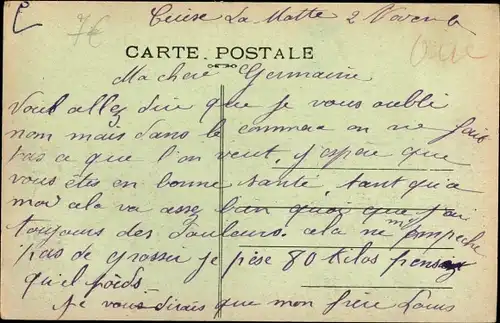 7€
Cuise La Motte 2 Novemb
CARTE POSTALE
Ma chere Germaine
Vous allez dire que je vous oubli
nom mais dans le commerce on ne fait
pas ce que l'on veut, j'espere que
vous êtes en bonne santé, tant qu'a
moi cela va assez bien quoi que j'ai
toujours des douleurs. cela ne m'empeche
pas de grossir je pèse 80 kilos pensez
quel poids.
Je vous dirais que mon frère Louis